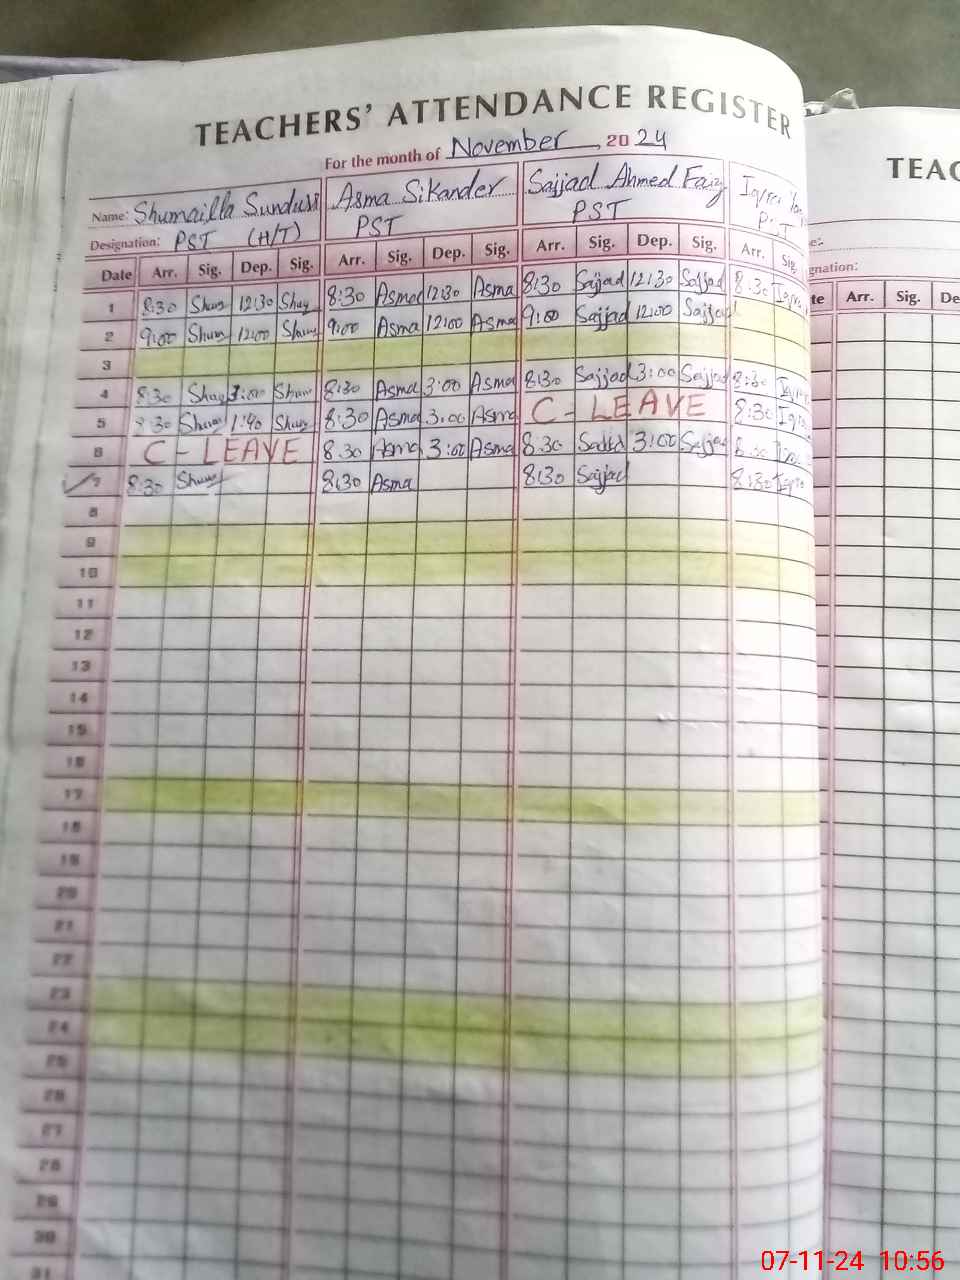 TEACHERS' ATTENDANCE REGISTER
For the month of November 2024
Name: Shumailla Sundus Asma Sikander Sajjad Ahmed Faiz Iqra
Designation: PST (H/T) PST PST PST
Date Arr. Sig. Dep. Sig. Arr. Sig. Dep. Sig. Arr. Sig. Dep. Sig. Arr. Sig.
1 8:30 Shum 12:30 Shum 8:30 Asma 12:30 Asma 8:30 Sajjad 12:30 Sajjad 8:30 Iqra
2 9:00 Shum 12:00 Shum 9:00 Asma 12:00 Asma 9:00 Sajjad 12:00 Sajjad
3
4 8:30 Shum 3:00 Shum 8:30 Asma 3:00 Asma 8:30 Sajjad 3:00 Sajjad 8:30 Iqra
5 8:30 Shum 1:40 Shum 8:30 Asma 3:00 Asma C - LEAVE 8:30 Iqra
6 C - LEAVE 8:30 Asma 3:00 Asma 8:30 Sajjad 3:00 Sajjad 8:30
7 8:30 Shum 8:30 Asma 8:30 Sajjad 8:30 Iqra
8
9
10
11
12
13
14
15
16
17
18
19
20
21
22
23
24
25
26
27
28
29
30
31
TEAC
Arr. Sig. De
07-11-24 10:56